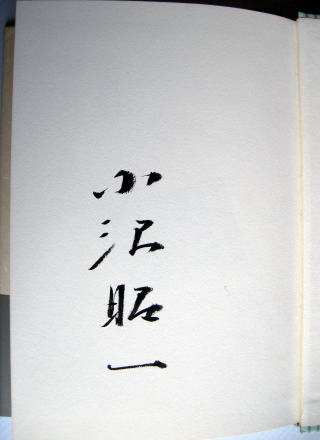 小沢昭一